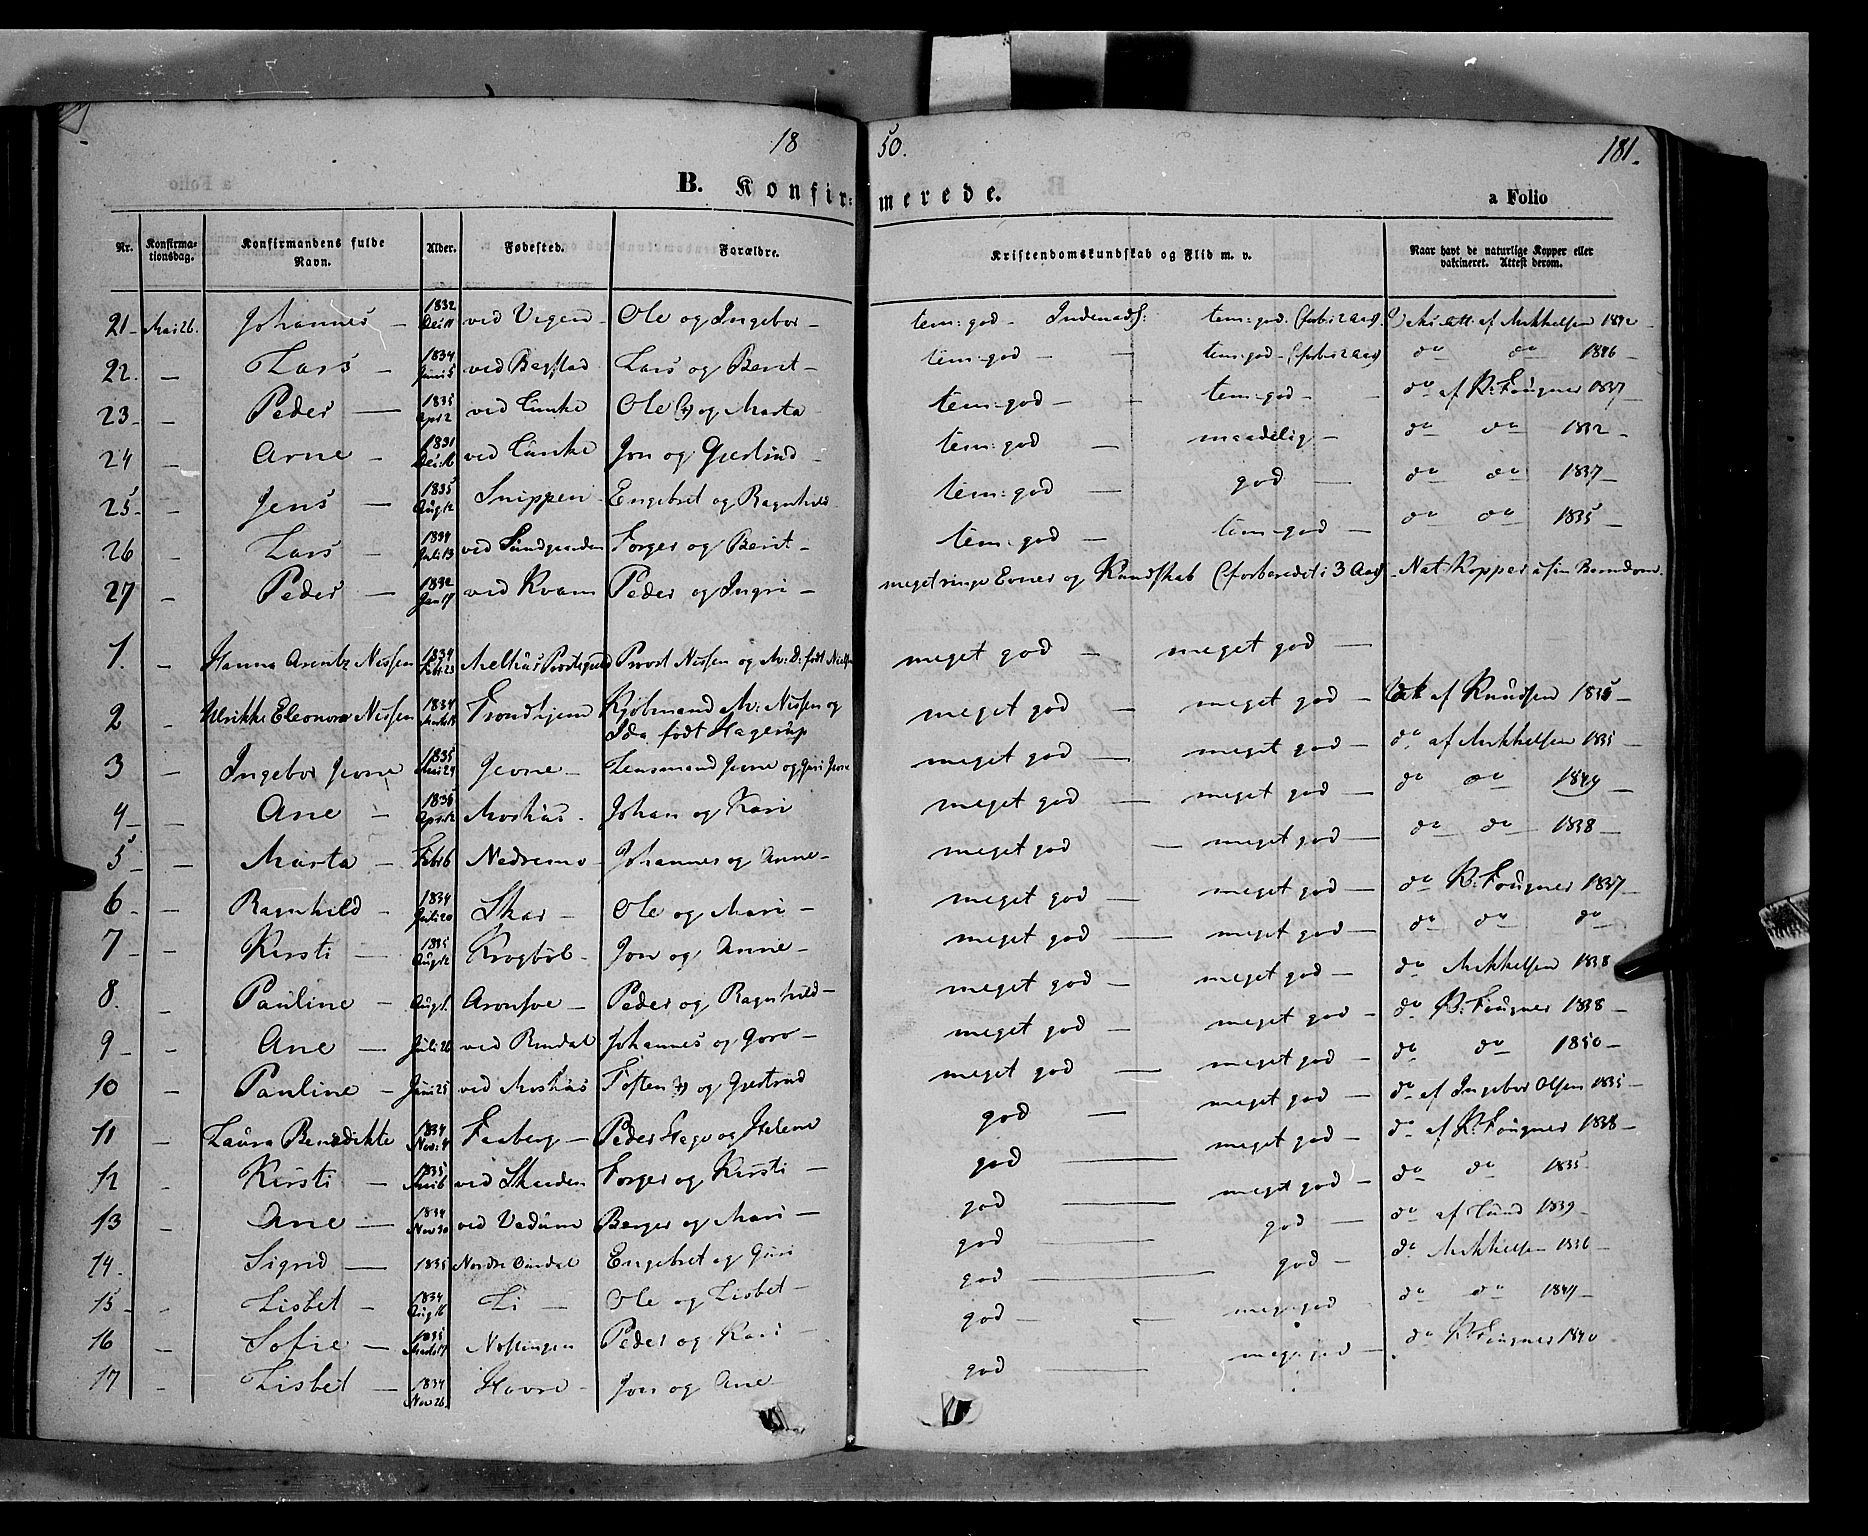 18 50. 181.
B. Konfirmerede. a Folio
Nr. Konfirmationsdag. Konfirmandens fulde Navn. Alder. Fødested. Forældre. Kristendomskundskab og Flid m. v. Naar havt de naturlige Kopper eller vakcineret. Attest derom.
21 Mai 26. Johannes 1832 Dec 11 ved Vigen Ole og Ingebor tem: god tem: god (forb: i 2 Aar) att: af Mikkelsen 1842
22. Lars 1834 Juni 5 ved Bøgstad Lars og Berit tem: god tem: god (forb: i 2 Aar) do do 1846
23 Peder 1835 Apr 2 ved Lunke Ole og Marta tem: god tem: god do af R: Fougner 1837
24 Arne 1831 Dec 16 ved Lunke Jon og Gjertrud tem: god maadelig do do 1832
25 Jens 1835 Aug 12 Snippen Engebret og Ragnhild tem: god god do do 1837
26 Lars 1834 Juli 13 ved Sundgaarden Torger og Berit tem: god tem: god do do 1835
27 Peder 1832 Jan 17 ved Kvam Peder og Ingri meget ringe Evner og Kundskab (forberedt i 3 Aar) Nat Kopper i sin Barndom.
1. Hanna Arentz Nissen 1834 Febr 23 Melhus Præstegjeld Provst Nissen og M: D: født meget god meget god
2 Ulrikke Eleonora Nissen 1834 Trondhjem Kjøbmand M: Nissen og Ida født Hagerup meget god meget god Vak af Knudsen 1835
3 Ingebor Jevne 1835 Mai 24 Jevne Lensmand Jevne og Guri Jevne meget god meget god do af Mikkelsen 1835
4 Ane 1835 Apr 12 Moshus Johan og Kari meget god meget god do do 1849
5 Marta Feb 6 Nedremo Johannes og Anne meget god meget god do do 1838
6 Ragnhild 1834 Juli 20 Skar Ole og Mari meget god meget god do R: Fougner 1837
7 Kirsti 1835 Aug 12 Krogbøl Jon og Anne meget god meget god do do do
8. Pauline Aug 1. Aronsve Peder og Ragnhild meget god meget god do Mikkelsen 1838
9 Ane Juli 26 ved Rindal Johannes og Goro meget god meget god do R: Fougner 1838
10 Pauline Juni 25 ved Moshus Tosten og Gjertrud meget god meget god do do 1850
11 Laura Benedikte 1834 Nov: 4 Faaberg Peder Hage og Helene god meget god do af Ingebor Olsen 1835
12 Kirsti 1835 ved Skurden Torger og Kirsti god meget god do af R: Fougner 1838
13 Ane 1834 Nov 30 ved Vadum Berger og Mari god meget god do do 1835
14. Sigrid 1835 Nordre Engebret og Guri god god do af Lund 1839
15 Lisbet 1834 Aug 16 Li Ole og Lisbet god god do Mikkelsen 1836
16 Sofie 1835 Nostingen Peder og Kari god meg: god do do 1847
17 Lisbet 1834 Nov 26 Hovre Jon og Ane god meg: god do R: Fougner 1840